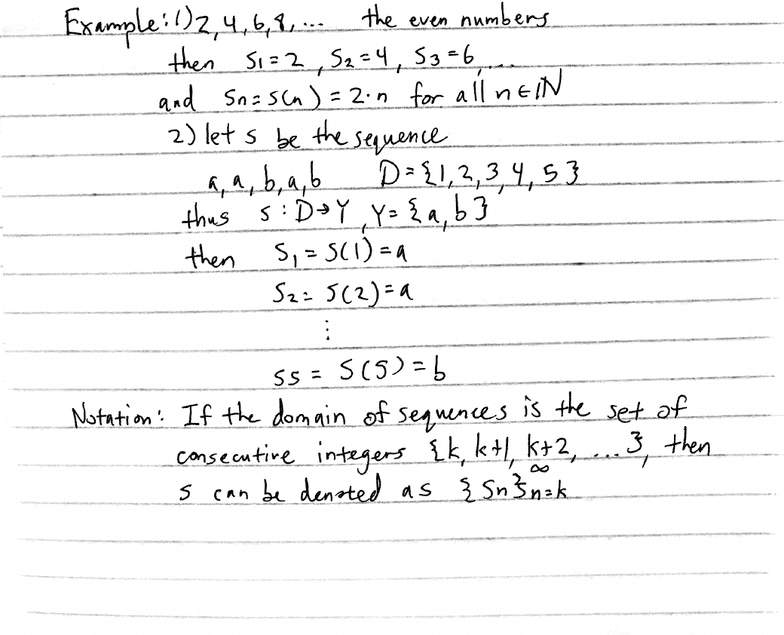 Example: 1) 2, 4, 6, 8, ... the even numbers
then S₁ = 2, S₂ = 4, S₃ = 6, ...
and Sn = S(n) = 2·n for all n ∈ ℕ
2) let s be the sequence
a, a, b, a, b D = {1, 2, 3, 4, 5}
thus s : D → Y, Y = {a, b}
then S₁ = S(1) = a
S₂ = S(2) = a
⋮
S5 = S(5) = b
Notation: If the domain of sequences is the set of
consecutive integers {k, k+1, k+2, ...}, then
s can be denoted as {Sn}∞n=k